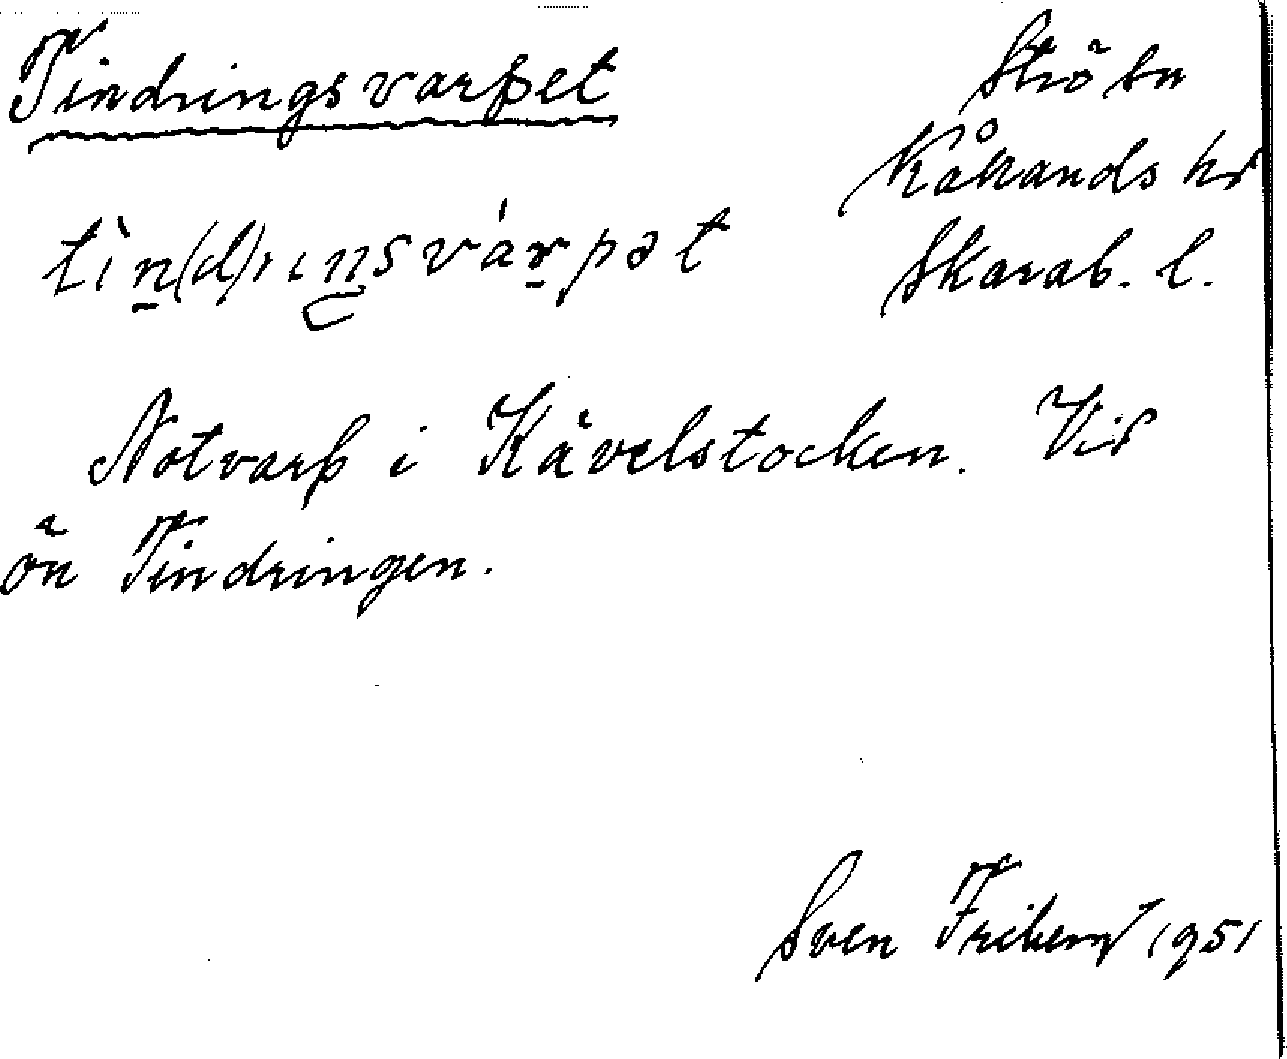 Tindringsvarpet
Ströbn
Kåkands hd
Skarab. l.
tìn(d)rıŋsvárpət
Notvarp i Kävelstocken. Vid
ön Tindringen.
Sven Friberg 1951